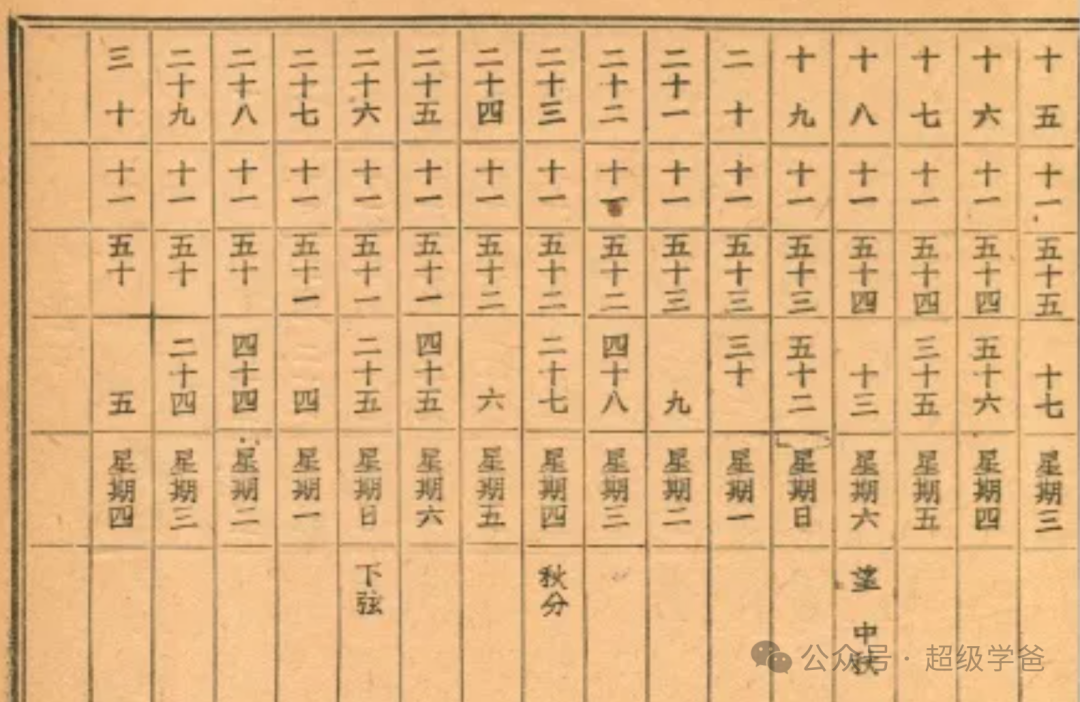 十五 十一 五十五 十七 星期三
十六 十一 五十四 五十六 星期四
十七 十一 五十四 三十五 星期五
十八 十一 五十四 十三 星期六 望 中秋
十九 十一 五十三 五十二 星期日
二十 十一 五十三 三十 星期一
二十一 十一 五十三 九 星期二
二十二 十一 五十二 四十八 星期三
二十三 十一 五十二 二十七 星期四 秋分
二十四 十一 五十二 六 星期五
二十五 十一 五十一 四十五 星期六
二十六 十一 五十一 二十五 星期日 下弦
二十七 十一 五十一 四 星期一
二十八 十一 五十 四十四 星期二
二十九 十一 五十 二十四 星期三
三十 十一 五十 五 星期四
公众号 · 超级学爸